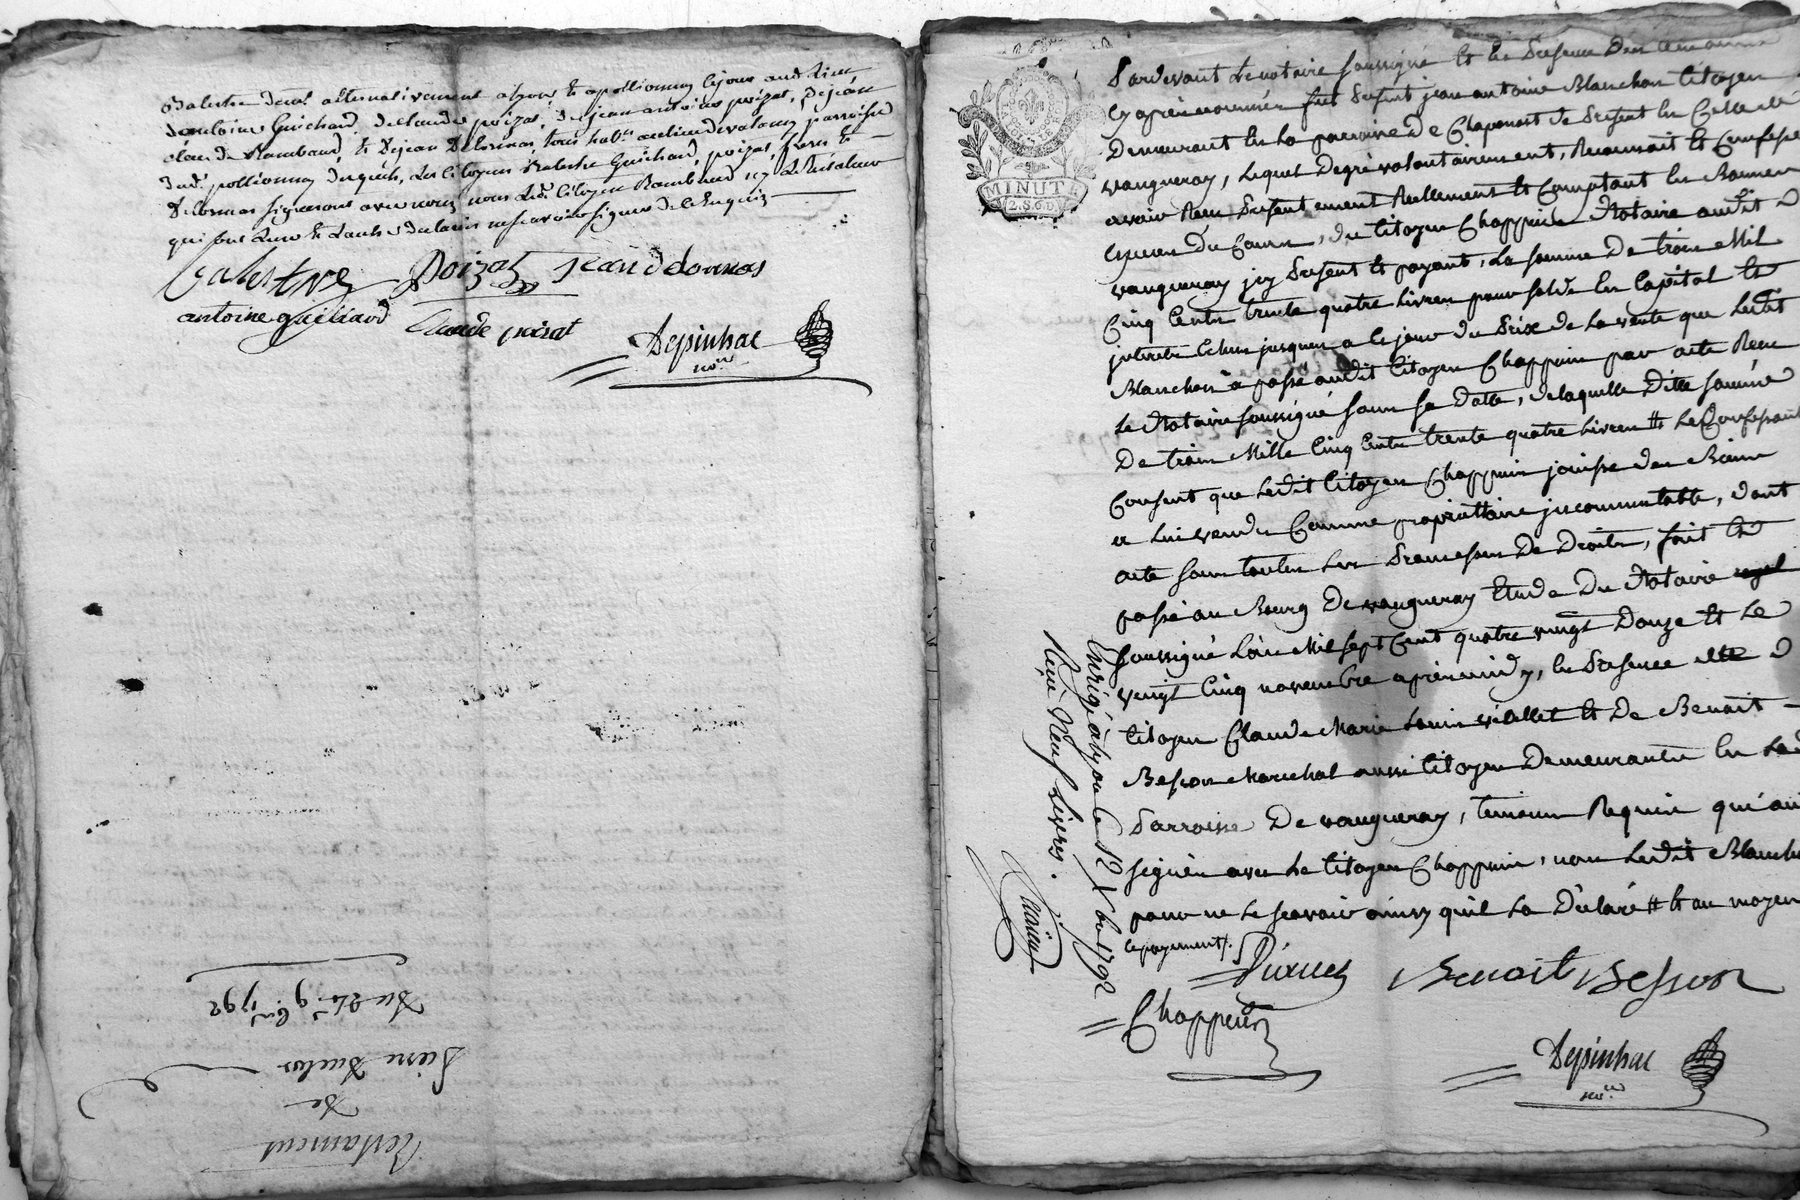 Balestre demt alternativement a lyon & a pollionnay le jour audt lieu,
d'antoine Guichard, de claude poizat, de jean antoine poizat, de jean
claude Rambaud, & de jean Delormas, tous habts au lieu de valency parroisse
dudt pollionnay requis, les citoyens Balestre Guichard, poizat, freres &
Delormas signeront avec nous, non led. citoyen Rambaud ny le testateur
qui pour l'avoir & l'autre declaré ne scavoir signer de ce Enquis
Balestre Poizat jean delormas
antoine guichard Claude poizat
Depinhac
nore
Testament
de
Piere
Du 24e 9bre 1792
MINUTE
2.S.6.D.
Pardevant Le notaire soussigné Et En Presence des temoins
Cy après nommés fut Present jean antoine Blanchon Citoyen
Demeurant En La parroisse De Chaponost de Present En Celle de
vaugneray, Lequel De gré volontairement, Reconnoit Et Confesse
avoir Reçu Presentement Reellement Et Comptant En Bonnes
Especes Du Cours, du Citoyen Chappuis Notaire audit
vaugneray jcy Present Et payant, La somme De trois Mil
Cinq Cents trente quatre Livres pour solde En Capital Et
jnterets Echus jusques a Ce jour du Prix de La vente que Ledit
Blanchon a passé audit Citoyen Chappuis par acte Reçu
Le Notaire soussigné sous sa Datte, de laquelle Ditte somme
De trois Mille Cinq Cents trente quatre Livres # Le Confessant
Consent que Ledit Citoyen Chappuis jouisse des Biens
a Lui vendus Comme propriettaire jncommutable, dont
acte sous toutes Les Promesses De Droits, fait Et
passé au Bourg De vaugneray Etude Du Notaire
soussigné L'an Mil sept Cent quatre vingt Douze Et Le
vingt Cinq novembre après midy, En Presence
Citoyen Claude Marie Louis Et De Benoit
Besson Marechal aussi Citoyen Demeurants En Lad
Parroisse De vaugneray, temoins Requis qui ont
signés avec Le Citoyen Chappuis, non Ledit Blanchon
pour ne Le scavoir ainsy quil La Déclaré # Et au moyen
ce payement /.
Enrigé a Lyon le 12 Xbre 1792
Reçu Neuf Livres.
Benoit Besson
Chappuis
Depinhac
nore